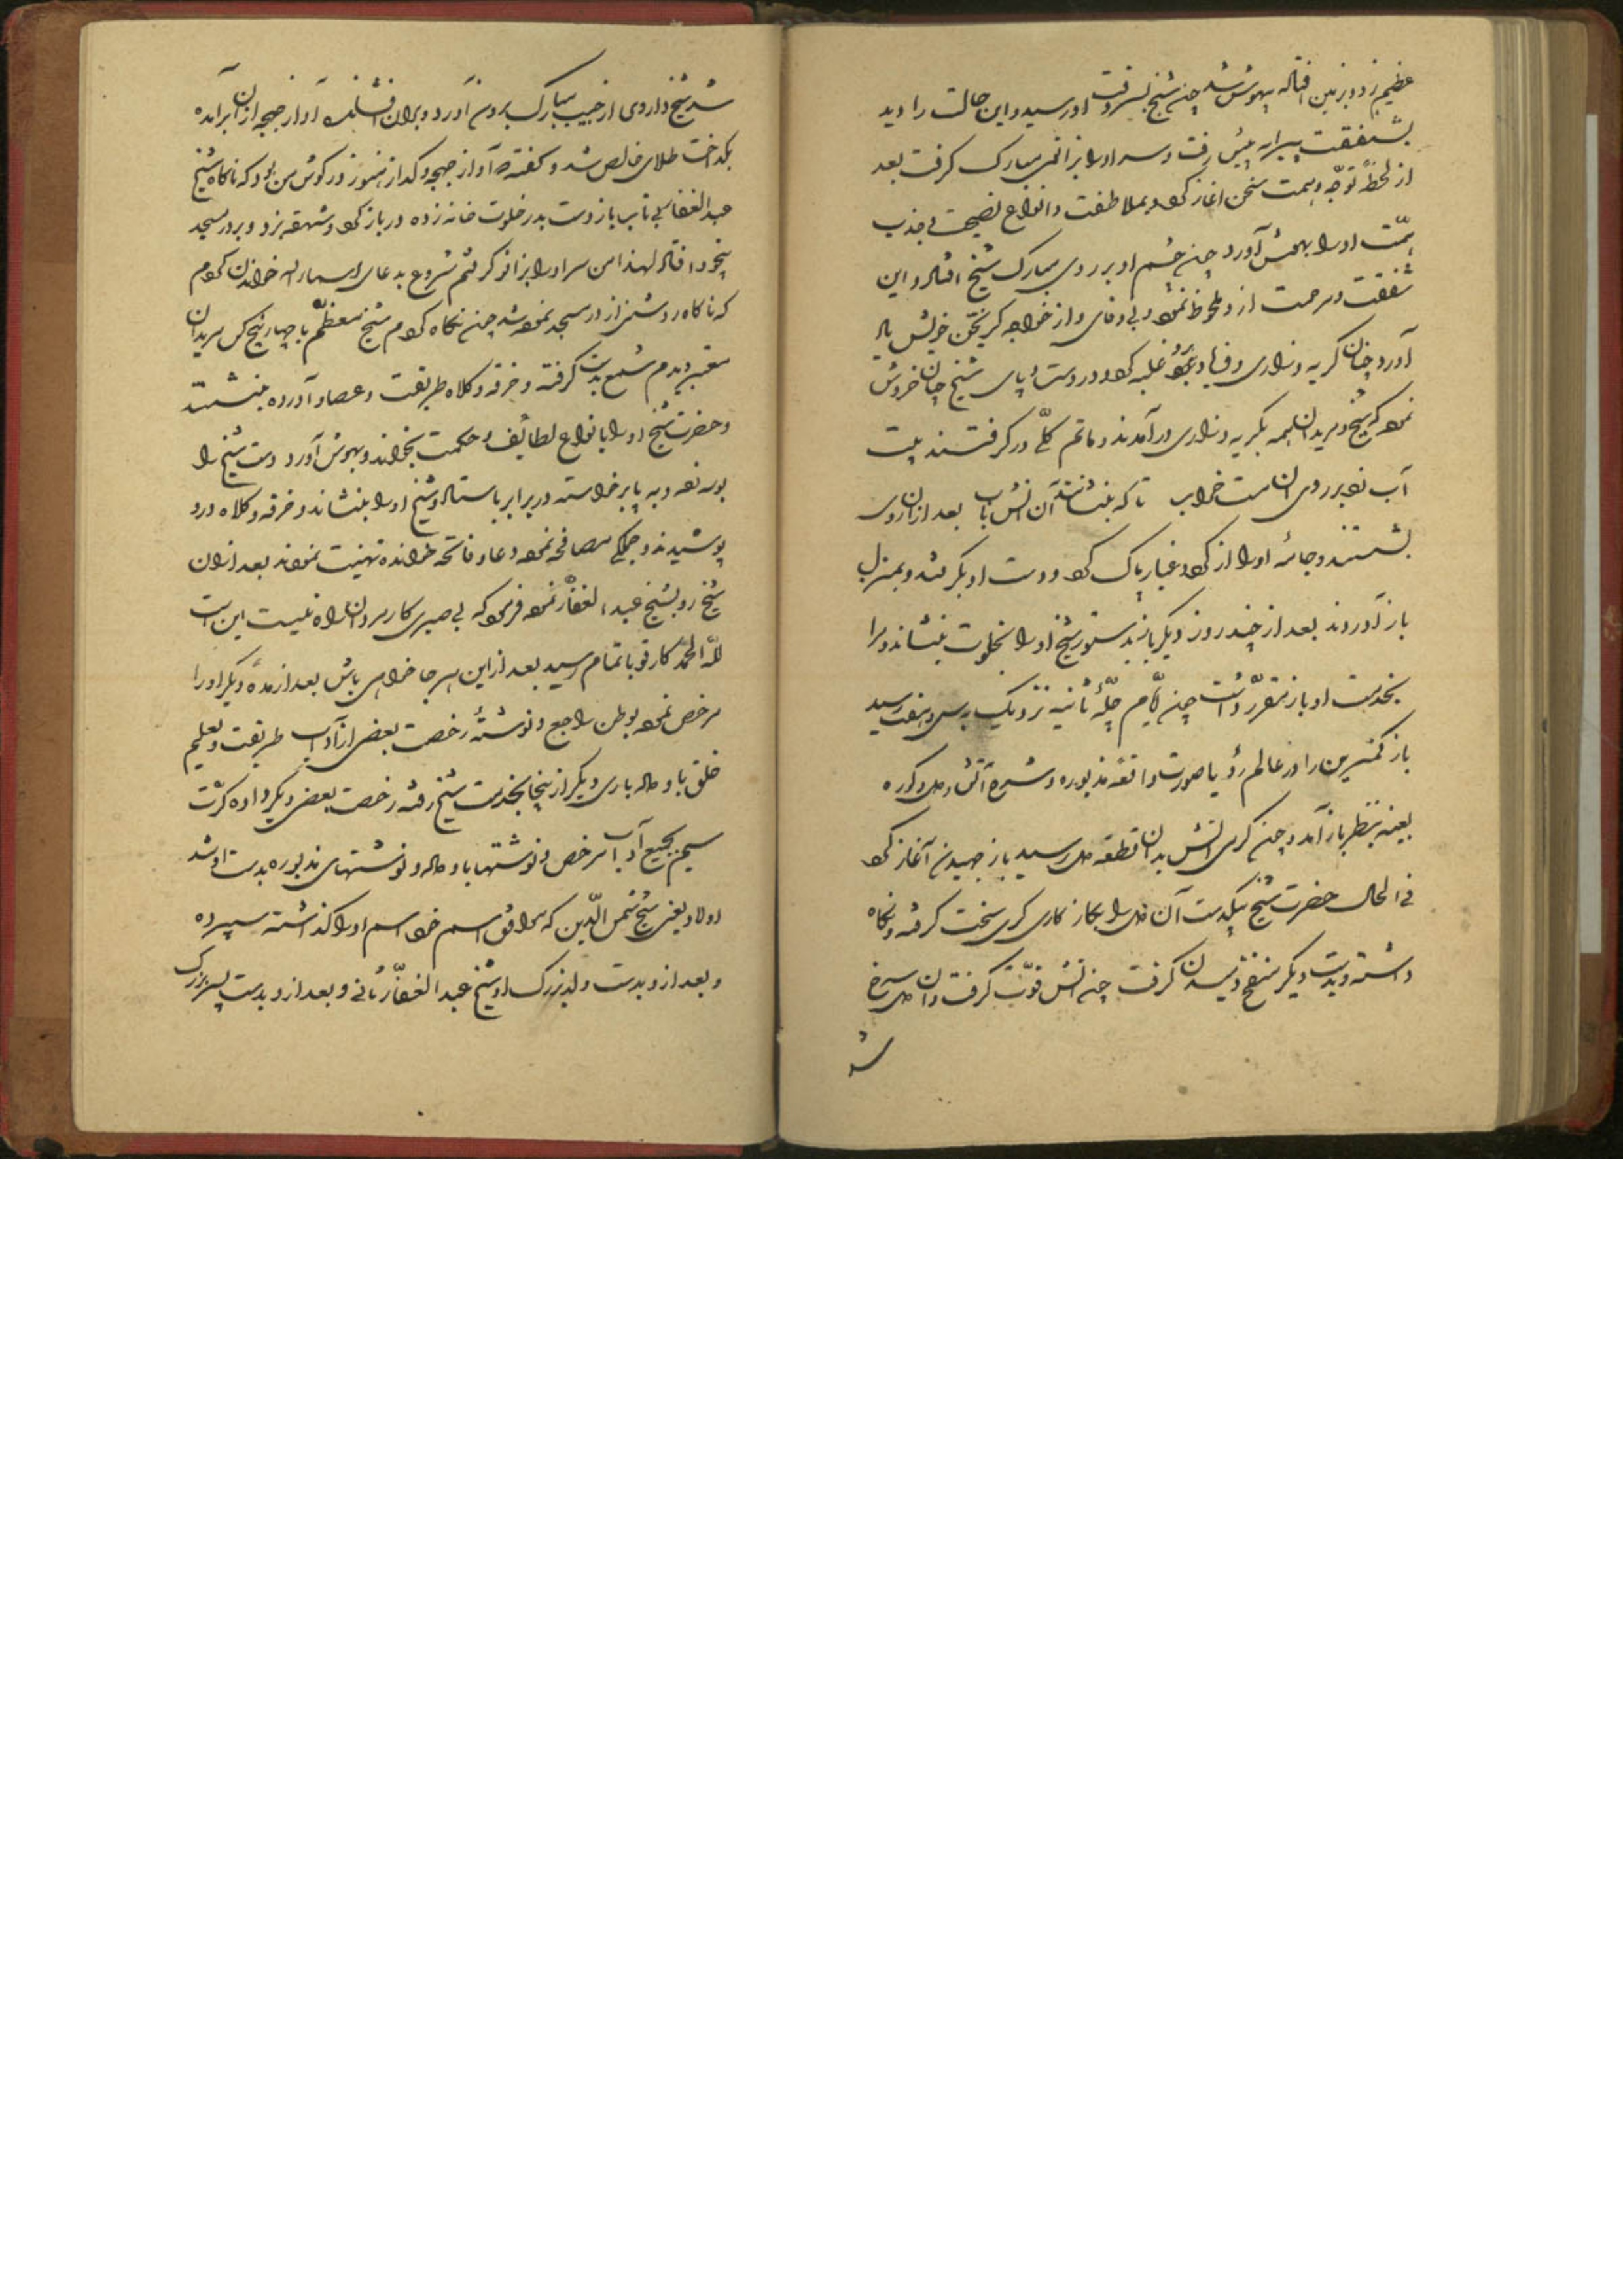 عظیم زد و بزمین افتاد بیهوش شد چون شیخ بسروقت او رسید و این حالت را دید
بشفقت پیرانه پیش رفت و سر او را بزانوی مبارک گرفت بعد
از لحظهٔ توجّه و همت سخن اغاز کرد و بملاطفت و انواع نصیحت بی جذب
همّت او را بهوش آورد چون چشم او بر روی مبارک شیخ افتاد و این
شفقت و مرحمت از و ملحوظ نمود و بی وفای و از خواجه کریختن خویش یاد
آورد چنان کریه و زاری و فریاد برو غلبه کرد و در دست و پای شیخ چنان خروش
نمود که شیخ و مریدان همه بکریه و زاری در آمدند و ماتم کلّی در کرفتند بیت
آب زدند بر روی ان مست خراب تا که بنشانند آن اتش باب بعد از ان روی
بشستند و جامهٔ او را از کرد و غبار پاک کرد و دست او بکرفتند و بمنزل
باز آوردند بعد از چند روز دیکر باز بدستور شیخ او را بخلوت بنشاند و مرا
بخدمت او باز مقرّر داشت چون ایّام چلّهٔ ثانیه نزدیک به سی و هفت رسید
باز کمترین را در عالم رؤیا صورت واقعهٔ مذبوره و شرح آتش و مس و کوره
بعینه بنظر باز آمد و چون کرمی اتش بدان قطعه مس رسید باز جهیدن آغاز کرد
فی الحال حضرت شیخ بیکدست آن مس را بکاز کاری کری سخت کرفته و نکاه
داشته و بدست دیکر منفخ دمیدن کرفت چون اتش قوّت کرفت و ان مس سرخ
شد
شد شیخ داروی از جیب مبارک برون آورد و بران افشاند آواز جهجه از ان بر آمده
بکداخت طلای خالص شد و کفته آواز جهجه و کداز هنوز در کوش من بود که ناکاه شیخ
عبد الغفار بی تاب باز دست بدر خلوت خانه زده در باز کرد و شهقه بزد و بر در مسجد
بیخود افتاد لهذا من سر او را بزانو کرفتم شروع بدعای اسماء اله خواندن کردم
که ناکاه روشنی از در مسجد نمود شد چون نکاه کردم شیخ معظّم با چهار پنج کس مریدان
معتبر دیدم شمع بدست کرفته و خرقه و کلاه طریقت و عصا و آورده بنشستند
و حضرت شیخ او را بانواع لطائف و حکمت بخواند و بهوش آورد دست شیخ را
بوسه نمود و به پا بر خواسته در برابر باستاد و شیخ او را بنشاند و خرقه و کلاه درو
پوشیدند و جملکی مصافحه نمود و دعا و فاتحه خوانده تهنیت نمودند بعد از ان
شیخ رو بشیخ عبد الغفّار نمود فرمود که بی صبری کار مردان راه نیست این است
للّه الحمد کار تو باتمام رسید بعد از این هر جا خواهی باش بعد از مدّهٔ دیکر او را
مرخص نمود بوطن راجع و نوشتهٔ رخصت بعضی از آداب طریقت و تعلیم
خلق باو داد باری دیکر از اینجا بخدمت شیخ رفته رخصت بعضی دیکر داده کرّت
سیم بجمیع آداب مرخص و نوشتها باو داد و نوشتهای مذبوره بدست ارشد
اولاد یعنی شیخ شمس الدّین که موافق اسم خود اسم او را کذاشته سپرده
و بعد از و بدست ولد بزرک او شیخ عبد الغفّار ثانی و بعد از و بدست پسر بزرک